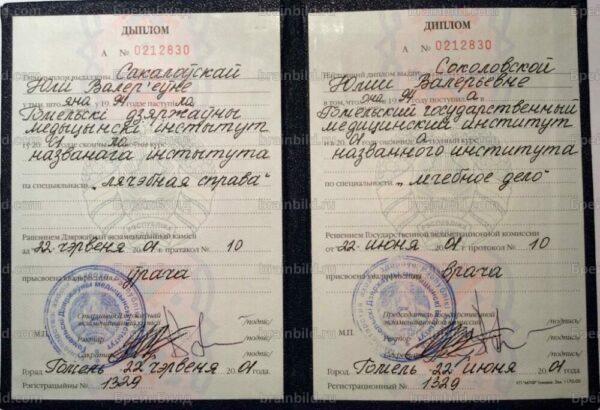 ДЫПЛОМ
А № 0212830
Сакалоўскай
Юліі Валер'еўне
у тым, што яна у 19 94 годзе паступіла
Гомельскі дзяржаўны
медыцынскі інстытут
названага інстытута
па спецыяльнасці „лячэбная справа“
Рашэннем Дзяржаўнай экзаменацыйнай камісіі
ад 22 чэрвеня 2001 г. пратакол № 10
прысвоена кваліфікацыя урача
Старшыня Дзяржаўнай
экзаменацыйнай камісіі /подпіс/
М.П. Рэктар /подпіс/
Сакратар /подпіс/
Горад Гомель 22 чэрвеня 2001 года.
Рэгістрацыйны № 1329
ДИПЛОМ
А № 0212830
Настоящий диплом выдан Соколовской
Юлии Валерьевне
в том, что она в 19 94 году поступила
Гомельский государственный
медицинский институт
названного института
по специальности „лечебное дело“
Решением Государственной экзаменационной комиссии
от 22 июня 2001 г. протокол № 10
присвоена квалификация врача
Председатель Государственной
экзаменационной комиссии /подпись/
М.П. Ректор /подпись/
Секретарь /подпись/
Город Гомель 22 июня 2001 года.
Регистрационный № 1329